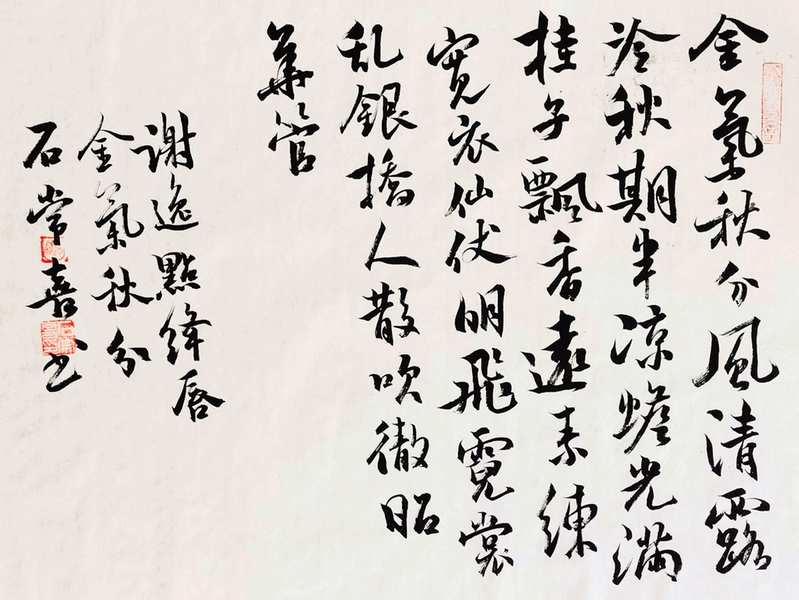 金氣秋分風清露
冷秋期半凉蟾光滿
桂子飄香遠素練
寬衣仙伏明飛霓裳
乱銀橋人散吹徹昭
華管
謝逸點絳唇
金氣秋分
石常喜书